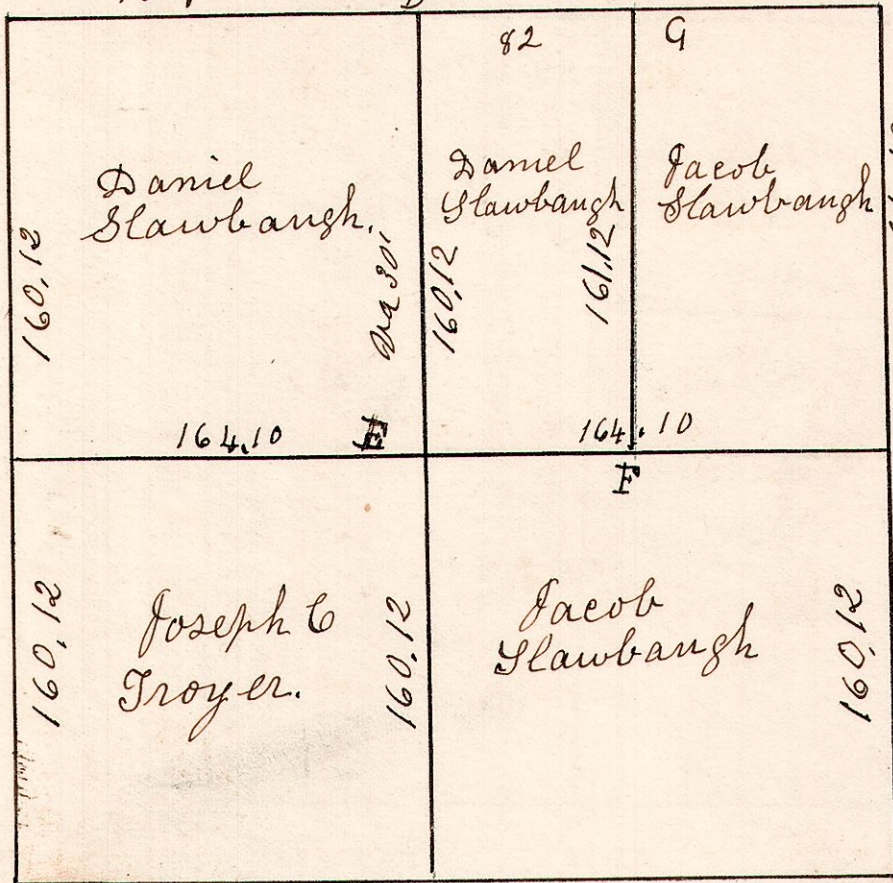 82
G
Daniel
Slawbaugh.
Daniel
Slawbaugh
Jacob
Slawbaugh
160,12
Va 30'
160,12
161,12
164,10
E
164,10
F
160,12
Joseph C
Troyer.
160,12
Jacob
Slawbaugh
160,12